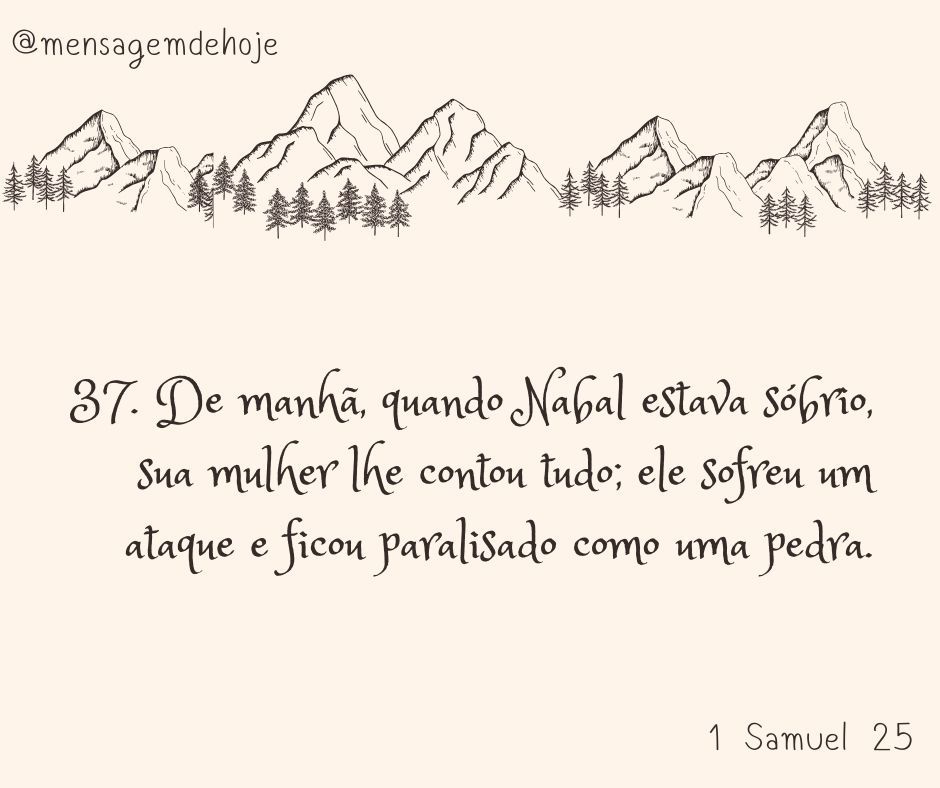 @mensagemdehoje
37. De manhã, quando Nabal estava sóbrio,
sua mulher lhe contou tudo; ele sofreu um
ataque e ficou paralisado como uma pedra.
1 Samuel 25